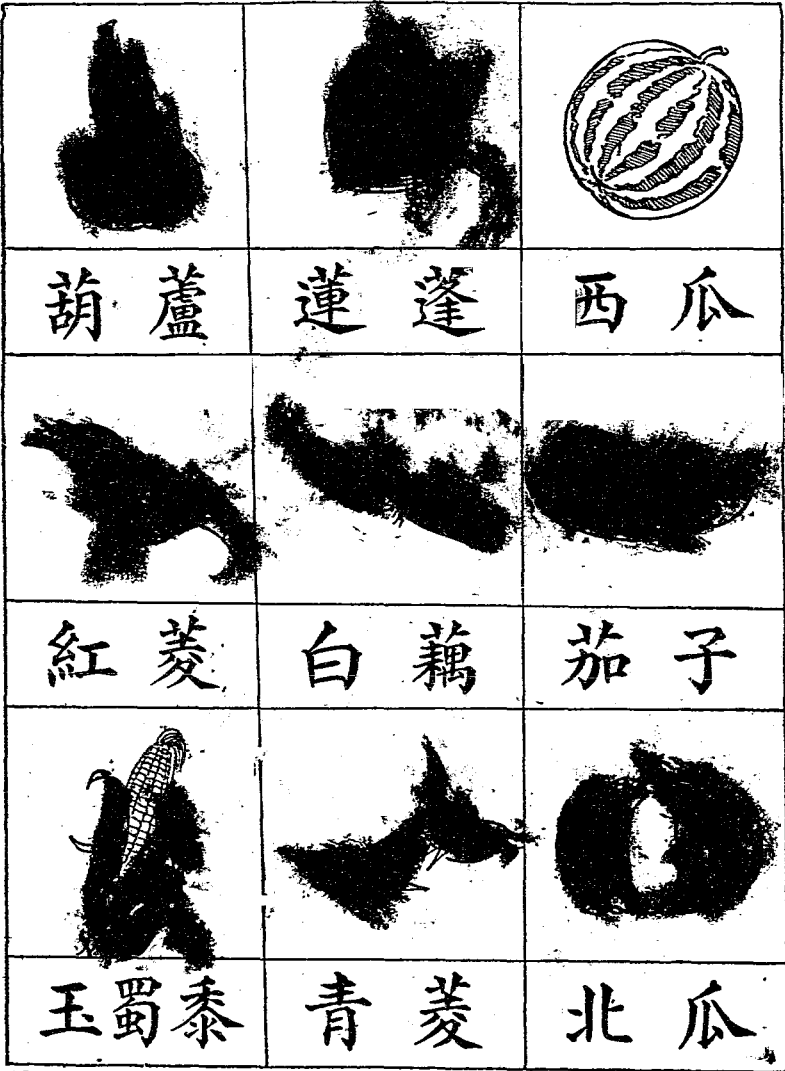 葫蘆 蓮蓬 西瓜
紅菱 白藕 茄子
玉蜀黍 青菱 北瓜